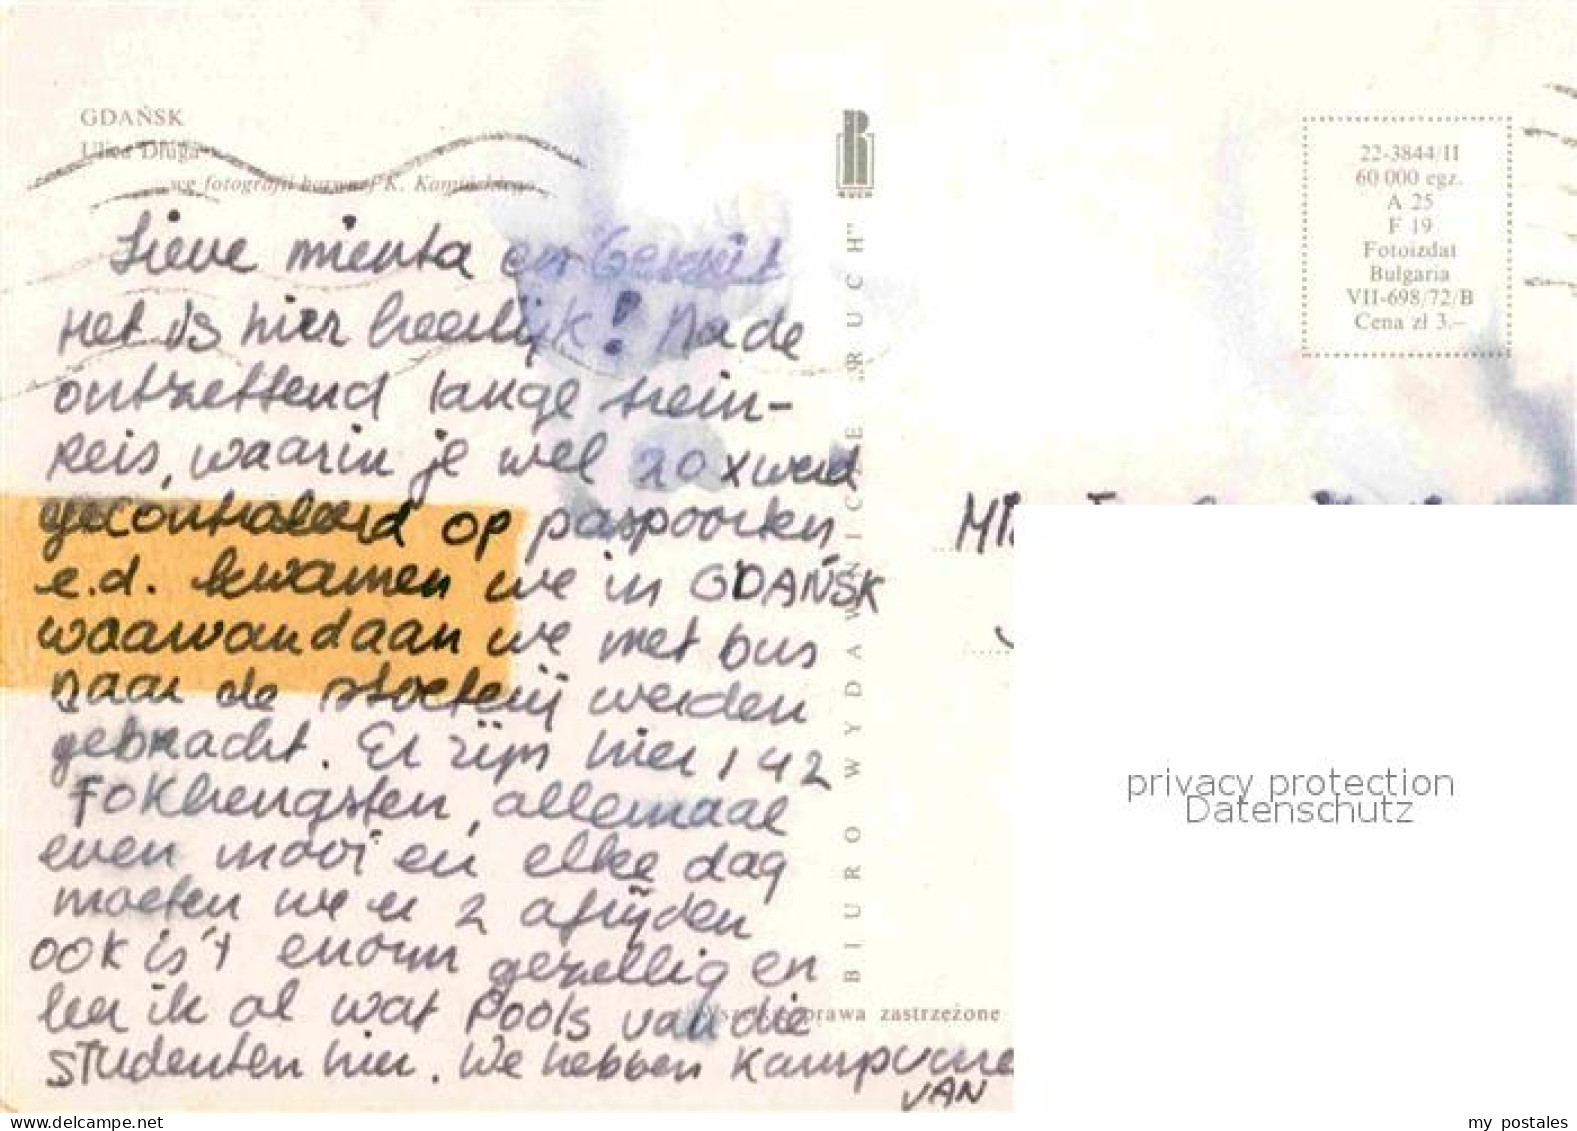 GDAŃSK
Ulica Długa
wg fotografii barwnej K. Kamińskiego
RUCH
22-3844/II
60 000 egz.
A 25
F 19
Fotoizdat
Bulgaria
VII-698/72/B
Cena zł 3.–
Lieve mienta en
Het is hier heerlijk! Na de
ontzettend lange trein-
reis, waarin je wel 20 x werd
gecontroleerd op paspoorten
e.d. kwamen we in GDAŃSK
waarvandaan we met bus
naar de stoeterij werden
gebracht. Er zijn hier 142
Fokhengsten, allemaal
even mooi en elke dag
moeten we er 2 afrijden
ook is 't enorm gezellig en
leer ik al wat Pools van die
studenten hier. We hebben kampvure
VAN
BIURO WYDAWNICZE „RUCH”
Wszelkie prawa zastrzeżone
privacy protection
Datenschutz
www.delcampe.net
my_postales